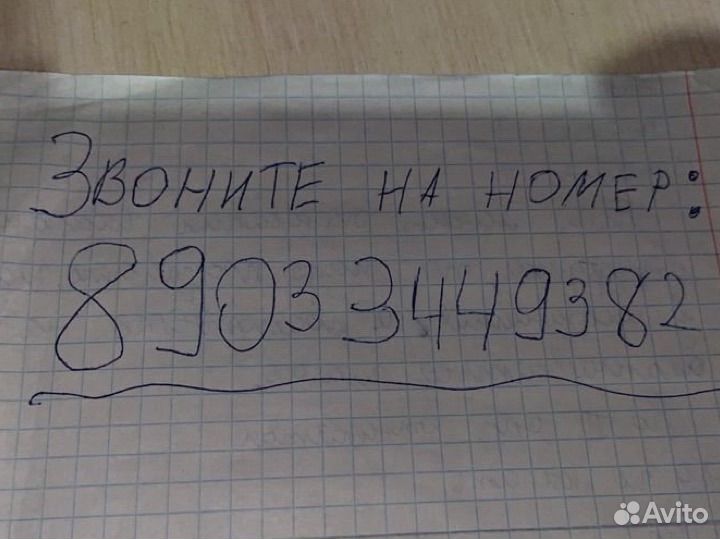 Звоните на номер:
89033449382
Avito